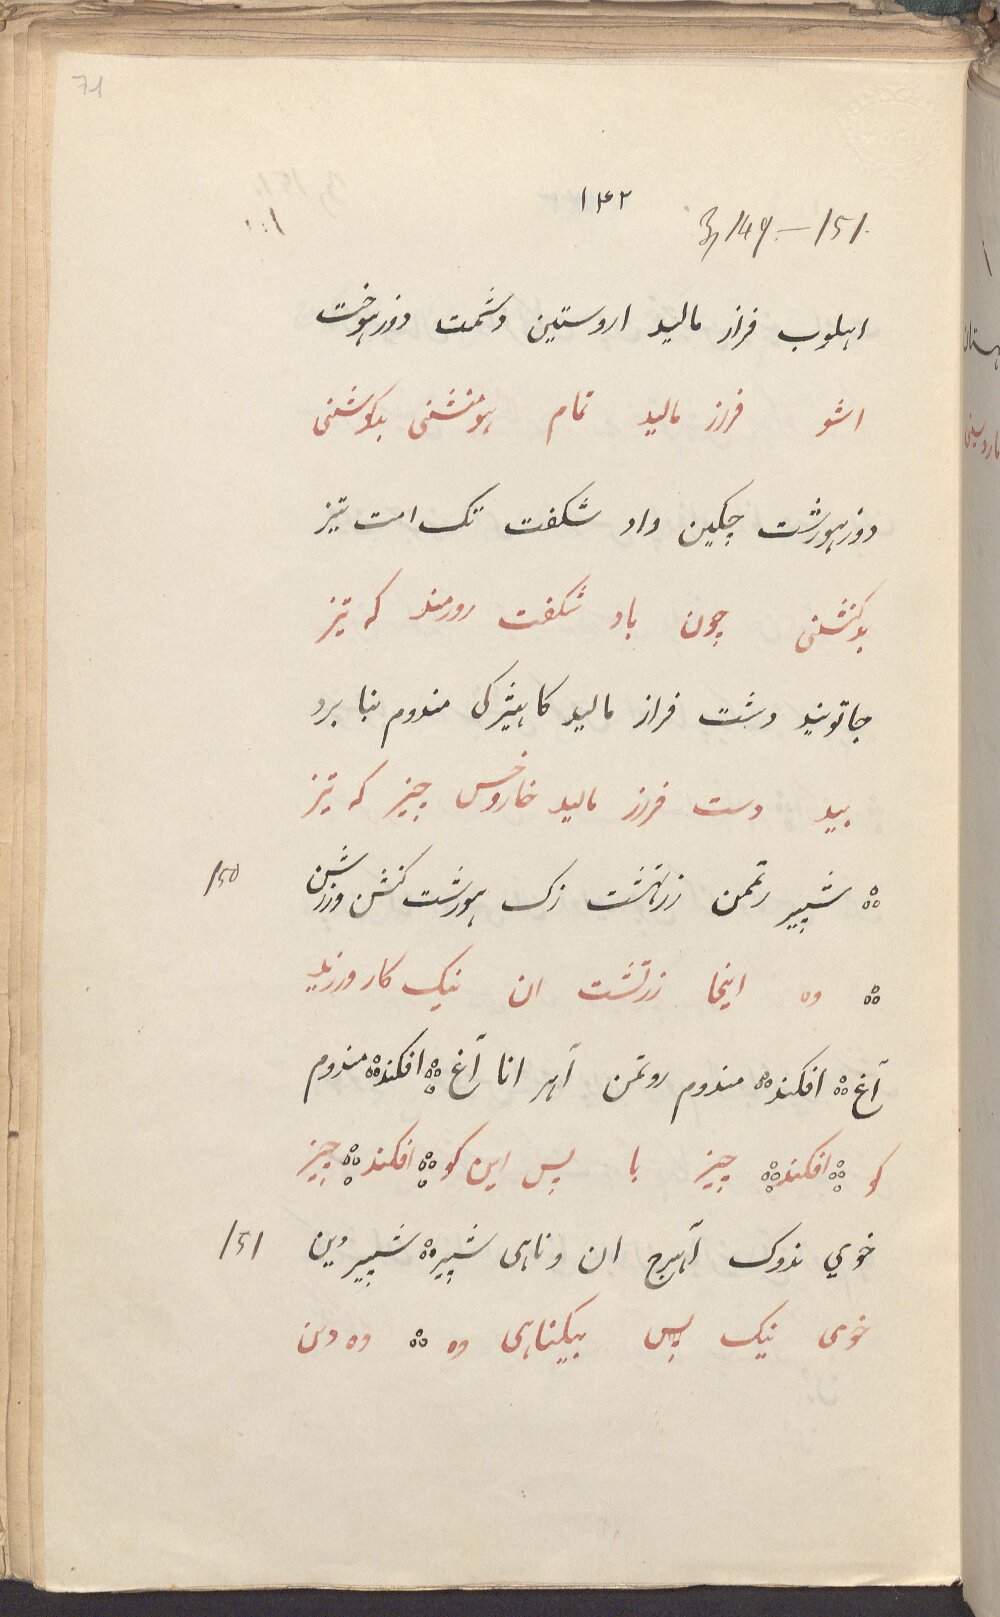 71
۱۴۲
3, 149 – 151.
اہلوب فراز مالید اروستین دشمت دوزہوخت
اشو فرز مالید تمام ہومنشنی بدکوشنی
دوزہورشت چکین واد شکفت تک امت تیز
بدکنشنی چون باد شکفت رورمند که تیز
جاتوںید دشت فراز مالید کاہیثرکی مندوم بنا برد
بید دست فرز مالید خاروخس چیز که تیز
150
شپیر رتمن زرتہشت زک ہورشت کنشن ورزشن
وه اینجا زرتشت ان نیک کار ورزید
آغ افکند مندوم روتمن آہر انا آغ افکند مندوم
کو افکند چیز با پس این کو افکند چیز
151
خوي ندوک آہرج ان وناہی شپیر شپیر دین
خوی نیک پس بیکناہی وه وه دین